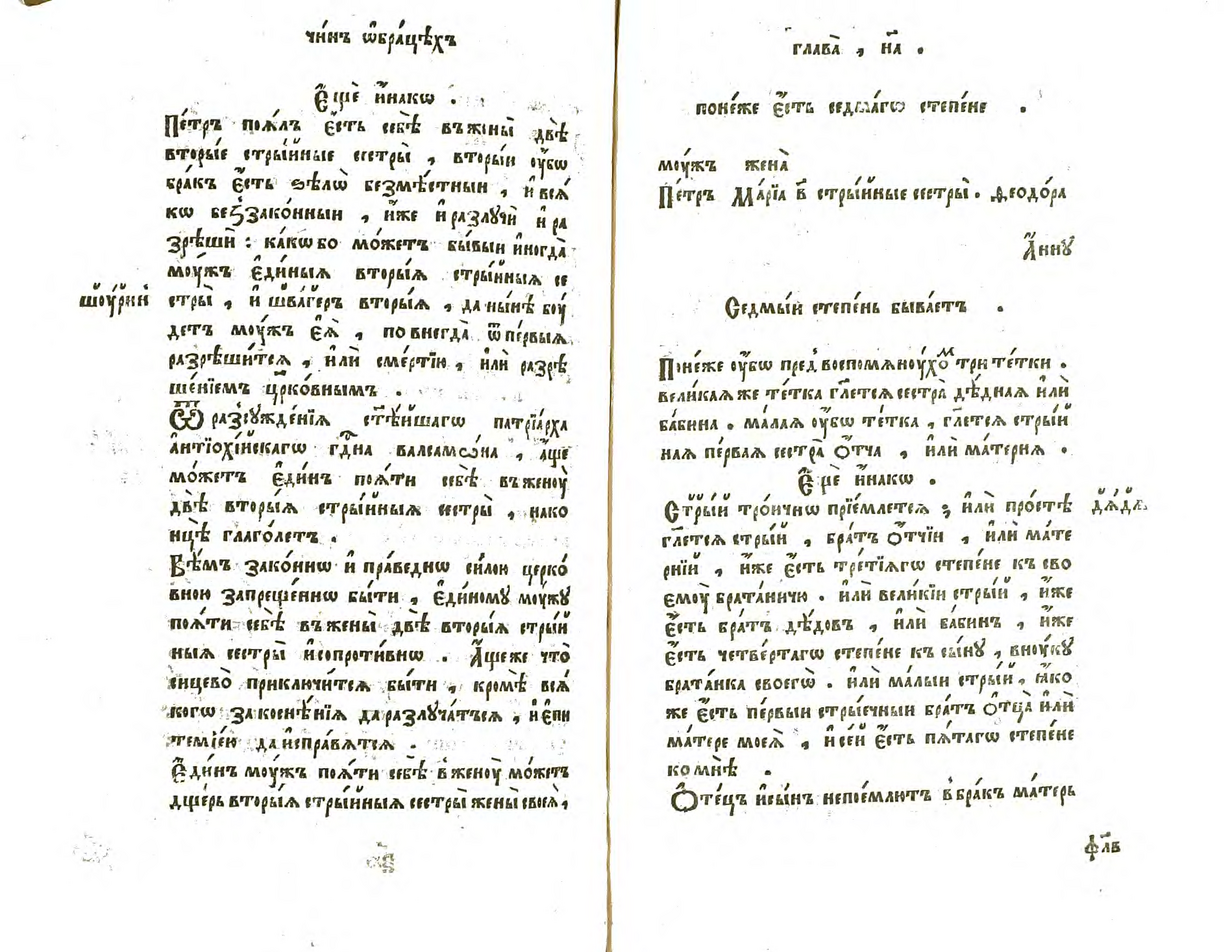 чи́нъ ѡ҆бра́цѣхъ
Є҆щѐ и҆́накѡ .
Пе́тръ поѧ́лъ є҆́сть себѣ̀ въжены̀ двѣ̀
вторы́е стры́йные сестры̀ , вторы́и ѹ҆́бѡ
бра́къ є҆́сть ѕѣлѡ̀ безмѣ́стныи , и҆ всѧ́
кѡ беззако́нныи , и҆́же и҆ разлѹчѝ и҆ ра
зрѣшѝ : ка́кѡбо мо́жетъ бы́выи и҆ногда̀
мѹ́жъ є҆ди́ныѧ вторы́ѧ стры́йныѧ се
стры̀ , и҆ шва́геръ вторы́ѧ , да ны́нѣ бѹ́
шѹ́рии
детъ мѹ́жъ є҆ѧ̀ , повнегда̀ ѿпе́рвыѧ
разрѣши́тсѧ , и҆лѝ сме́ртїю , и҆лѝ разрѣ
ше́нїемъ цр҃ко́внымъ .
Ѿ разсꙋжде́нїѧ ст҃ѣ́йшагѡ патрїа́рха
а҆нтїохі́йскагѡ гдⷭ҇на валсамѡ́на , а҆́ще
мо́жетъ є҆ди́нъ поѧ́ти себѣ̀ въженѹ̀
двѣ̀ вторы́ѧ стры́йныѧ сестры̀ , нако
нцѣ̀ глаго́летъ .
Вѣ́мъ зако́ннѡ и҆ пра́веднѡ си́лою церко́
вною запреще́ннѡ бы́ти , є҆ди́номꙋ мѹ́жꙋ
поѧ́ти себѣ̀ въжены̀ двѣ̀ вторы́ѧ стры́й
ныѧ сестры̀ и҆сопроти́внѡ . А҆́щеже что̀
сицево̀ приключи́тсѧ бы́ти , кромѣ̀ всѧ́
когѡ закоснѣ́нїѧ даразлꙋча́тьсѧ , и҆ є҆пи
темїе́ю даи҆спра́вѧтсѧ .
Є҆ди́нъ мѹ́жъ поѧ́ти себѣ̀ в҆женѹ̀ мо́жетъ
дще́рь вторы́ѧ стры́йныѧ сестры̀ жены̀ своеѧ̀ ,
глава̀ , н҃а .
поне́же є҆́сть седма́гѡ степе́не .
мѹ́жъ жена̀
Пе́тръ Ма́рїа в҃ стры́йные сестры̀ . Ѳеодо́ра
А҆́ннꙋ
Седмы́й степе́нь быва́етъ .
Поне́же ѹ҆́бѡ пред̾воспомѧнѹ́хоⷨ три те́тки .
вели́каѧже те́тка гл҃етсѧ сестра̀ дѣ́днаѧ и҆лѝ
ба́бина . ма́лаѧ ѹ҆́бѡ те́тка , гл҃етсѧ стры́й
наѧ пе́рваѧ сестра̀ ѻ҆тча̀ , и҆лѝ ма́терня .
Є҆щѐ и҆́накѡ .
Стры́й тро́ичнѡ прїе́млетсѧ ; и҆лѝ про́стѣ
дѧ́дѧ
гл҃етсѧ стры́й , бра́тъ ѻ҆́тчїи , и҆лѝ мате
рні́й , и҆́же є҆́сть тре́тїѧгѡ степе́не къ сво
емѹ̀ брата́ничю . и҆лѝ вели́кїи стры́й , и҆́же
є҆́сть бра́тъ дѣ́довъ , и҆лѝ ба́бинъ , и҆́же
є҆́сть четве́ртагѡ степе́не къ сы́нꙋ , внѹ́кꙋ
брата́нка своегѡ̀ . и҆лѝ ма́лыи стры́й , ꙗ҆́ко
же є҆́сть пе́рвыи стры́ечныи бра́тъ ѻ҆тца̀ и҆лѝ
ма́тере моеѧ̀ , и҆ се́й є҆́сть пѧ́тагѡ степе́не
ко мнѣ̀ .
Ѻ҆те́цъ и҆сы́нъ непое́млютъ в҆бра́къ ма́терь
ф҃лв